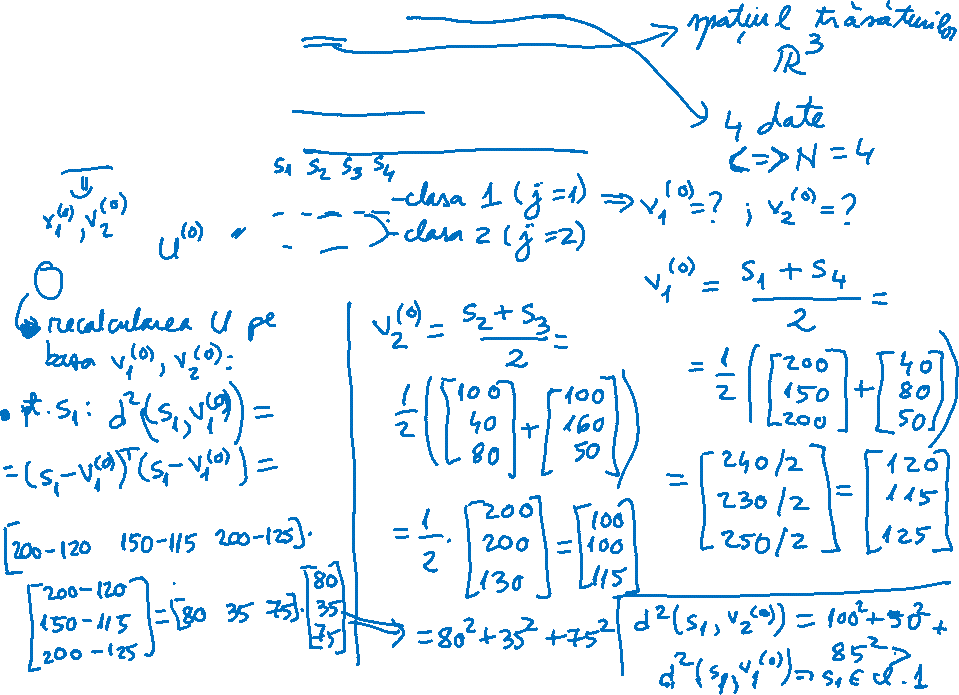 spațiul trăsăturilor
ℝ³
4 date
<=> N = 4
s₁ s₂ s₃ s₄
⇓
v₁⁽⁰⁾, v₂⁽⁰⁾
U⁽⁰⁾ =
- clasa 1 (j=1) ⇒ v₁⁽⁰⁾=? ; v₂⁽⁰⁾=?
- clasa 2 (j=2)
v₁⁽⁰⁾ = (s₁ + s₄)/2 =
= 1/2 ([200 150 200] + [40 80 50])
= [240/2 230/2 250/2] = [120 115 125]
v₂⁽⁰⁾ = (s₂ + s₃)/2 =
1/2 ([100 40 80] + [100 160 50])
= 1/2 · [200 200 130] = [100 100 115]
→ recalcularea U pe
baza v₁⁽⁰⁾, v₂⁽⁰⁾:
• pt. s₁: d²(s₁, v₁⁽⁰⁾) =
= (s₁ - v₁⁽⁰⁾)ᵀ (s₁ - v₁⁽⁰⁾) =
[200-120 150-115 200-125] ·
[200-120 150-115 200-125] = [80 35 75] · [80 35 75]
→ = 80² + 35² + 75²
d²(s₁, v₂⁽⁰⁾) = 100² + 50² +
85² >
d²(s₁, v₁⁽⁰⁾) ⇒ s₁ ∈ cl. 1